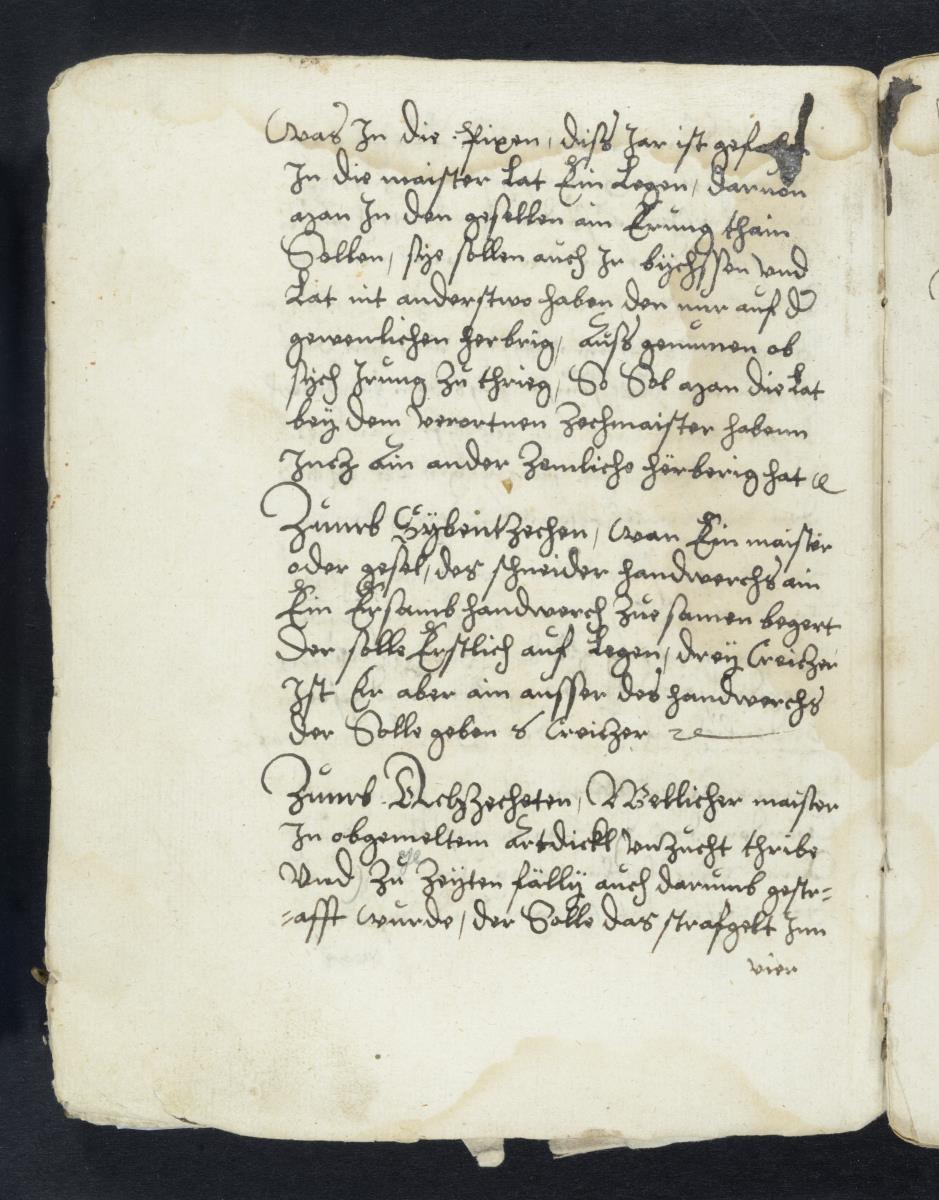 Was In die Pixen, diss Jar ist
In die maister Lat Ein Legen, daruon
man In den gesellen ain Erung thain
Sollen, sye sollen auch Ir bychssen vnd
Lat nit anderstwo haben den nur auf d
gewenlichen herbrig, Auss genumen ob
sych Irung zu thrieg, So Sol man die Lat
bey dem verortnen Zechmaister habenn
Incz Ain ander Zemliche herberig hat
Zumb Sybentzechen, Wan Ein maister
oder gesel, des schneider handwerchs ain
Ein Ersamb handwerch zue samen begert
Der solle Erstlich auf Legen, drey Creiczer
Ist Er aber ain ausser des handwerchs
der Solle geben 6 Creiczer
Zumb Achzecheten, Wellicher maister
In obgemeltem Artdickl vnzucht thribe
Vnd zu Zeyten fälly auch darumb gestr=
=afft wurde, der Solle das strafgelt Inn
vier